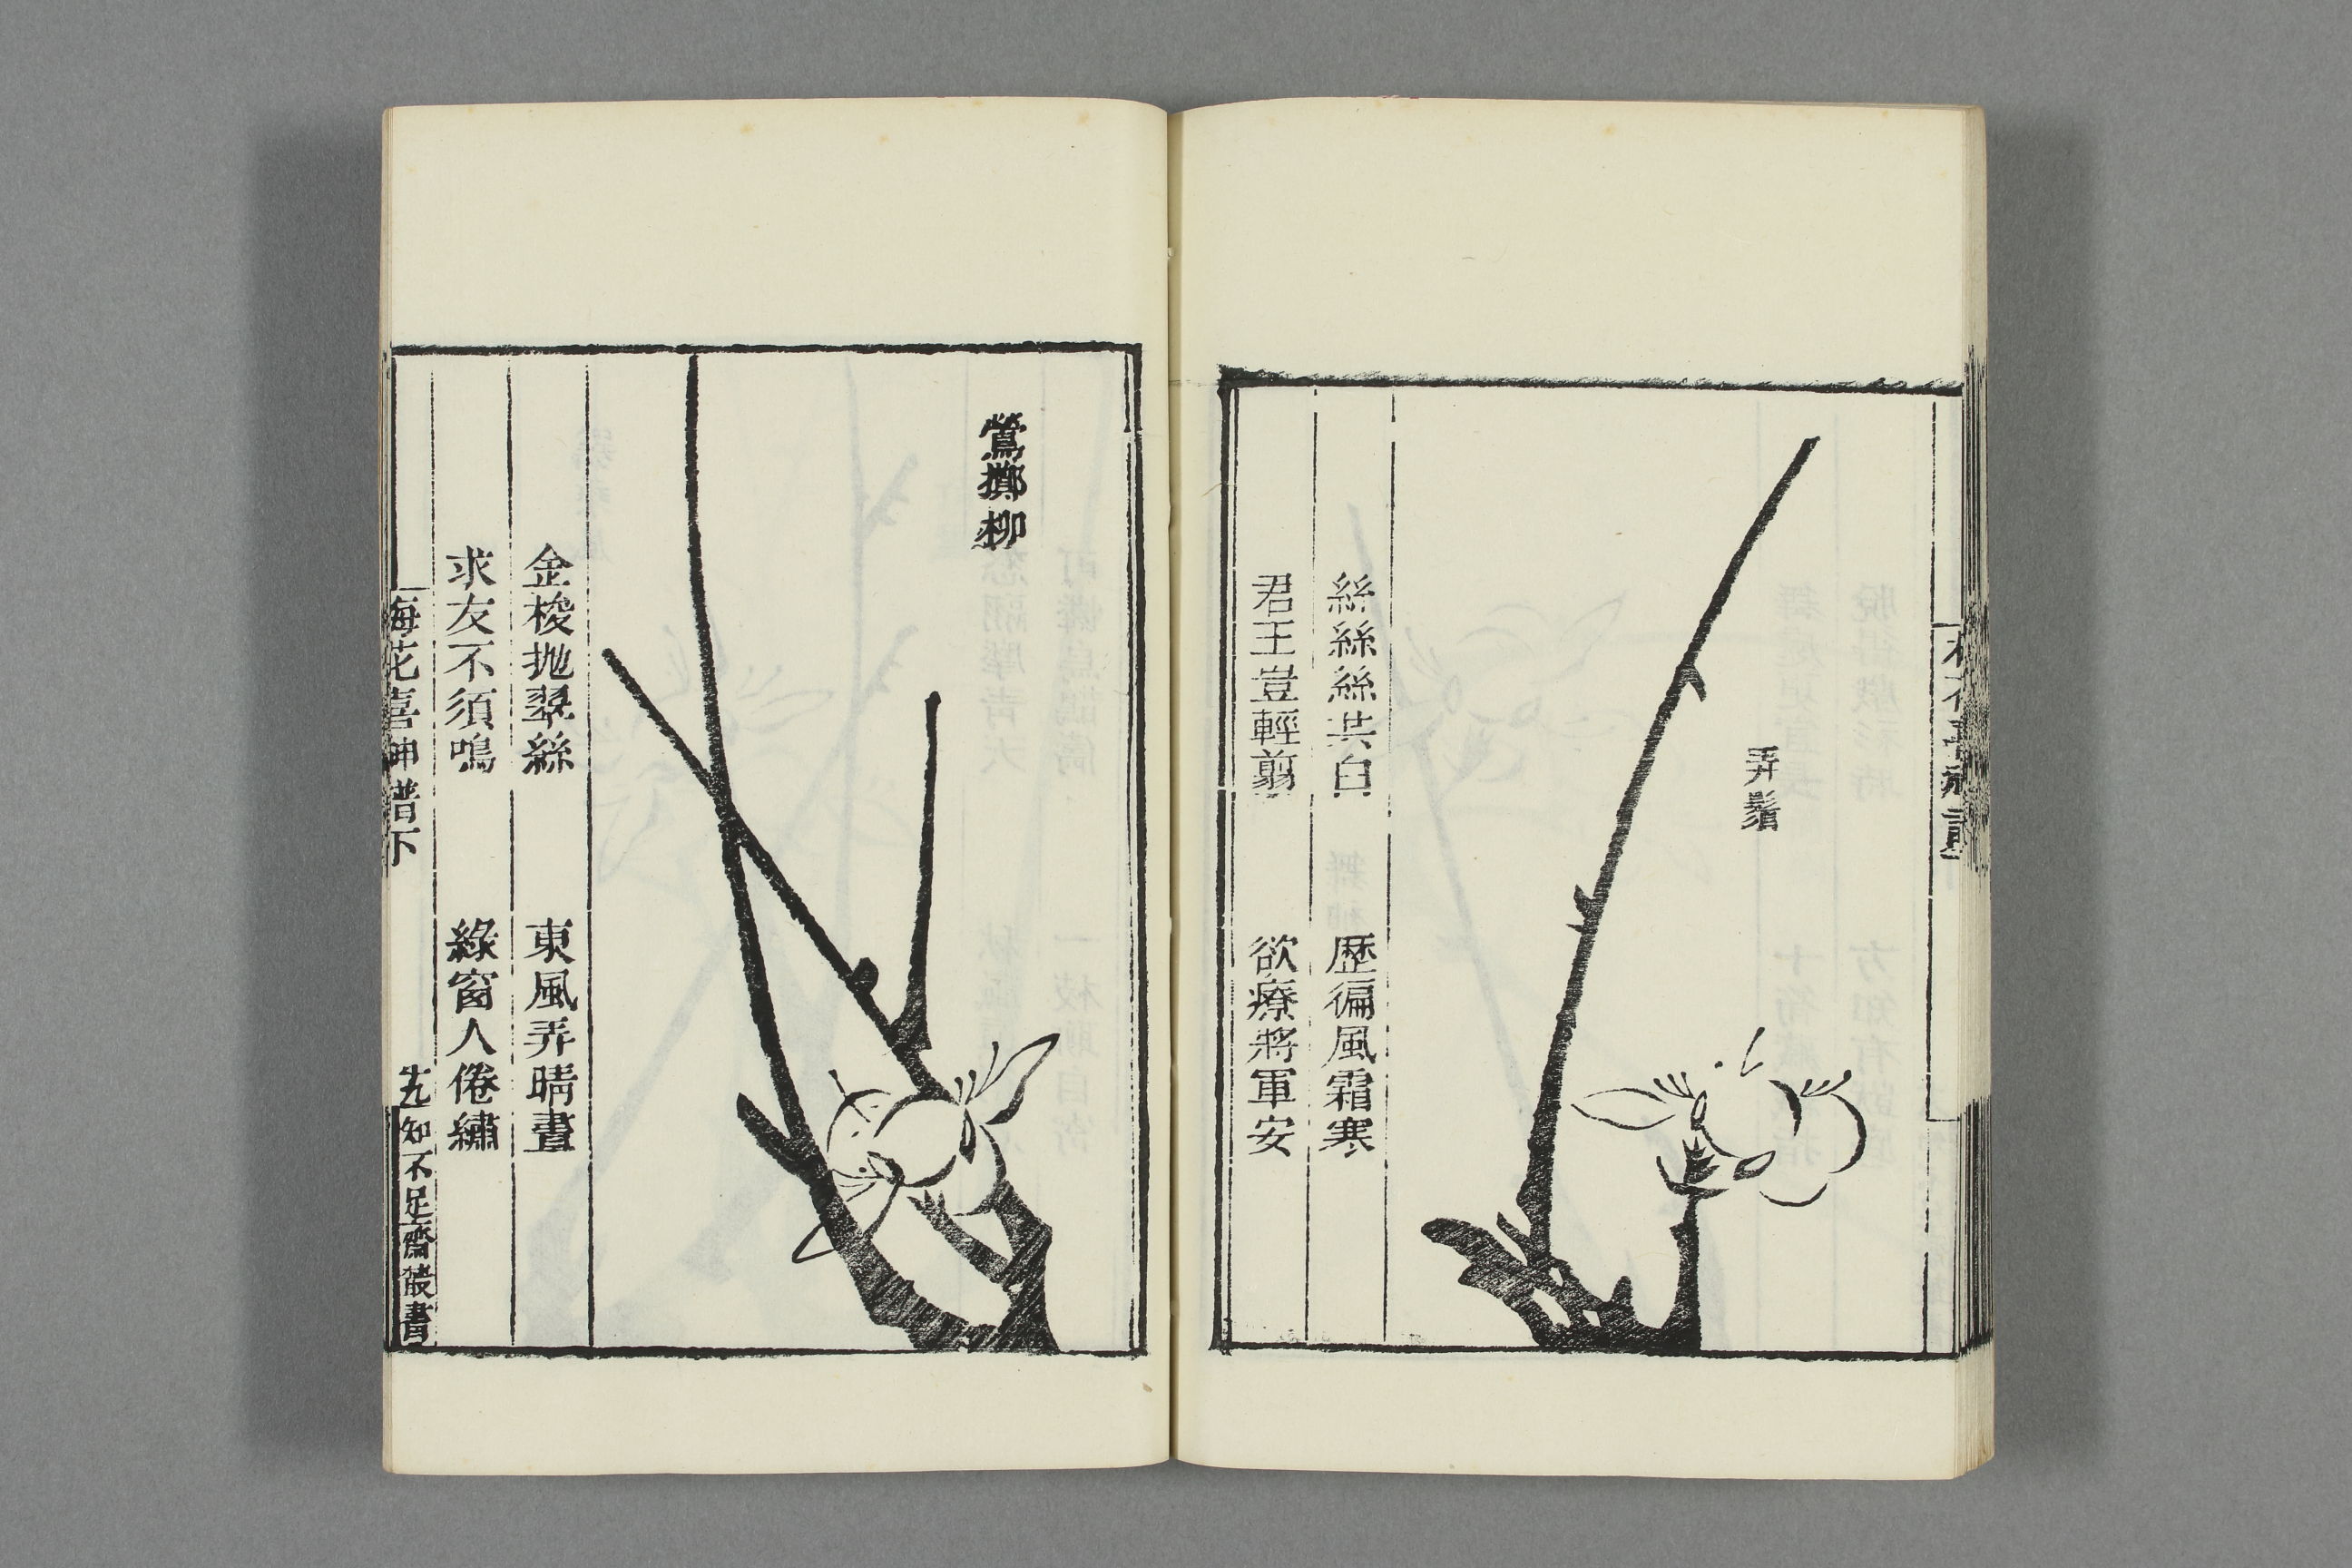 弄鬚
絲絲絲共白 歷徧風霜寒
君王豈輕翦 欲療將軍安
鶯擲柳
金梭拋翠絲 東風弄晴晝
求友不須鳴 綠窗人倦繡
梅花喜神譜下 知不足齋叢書